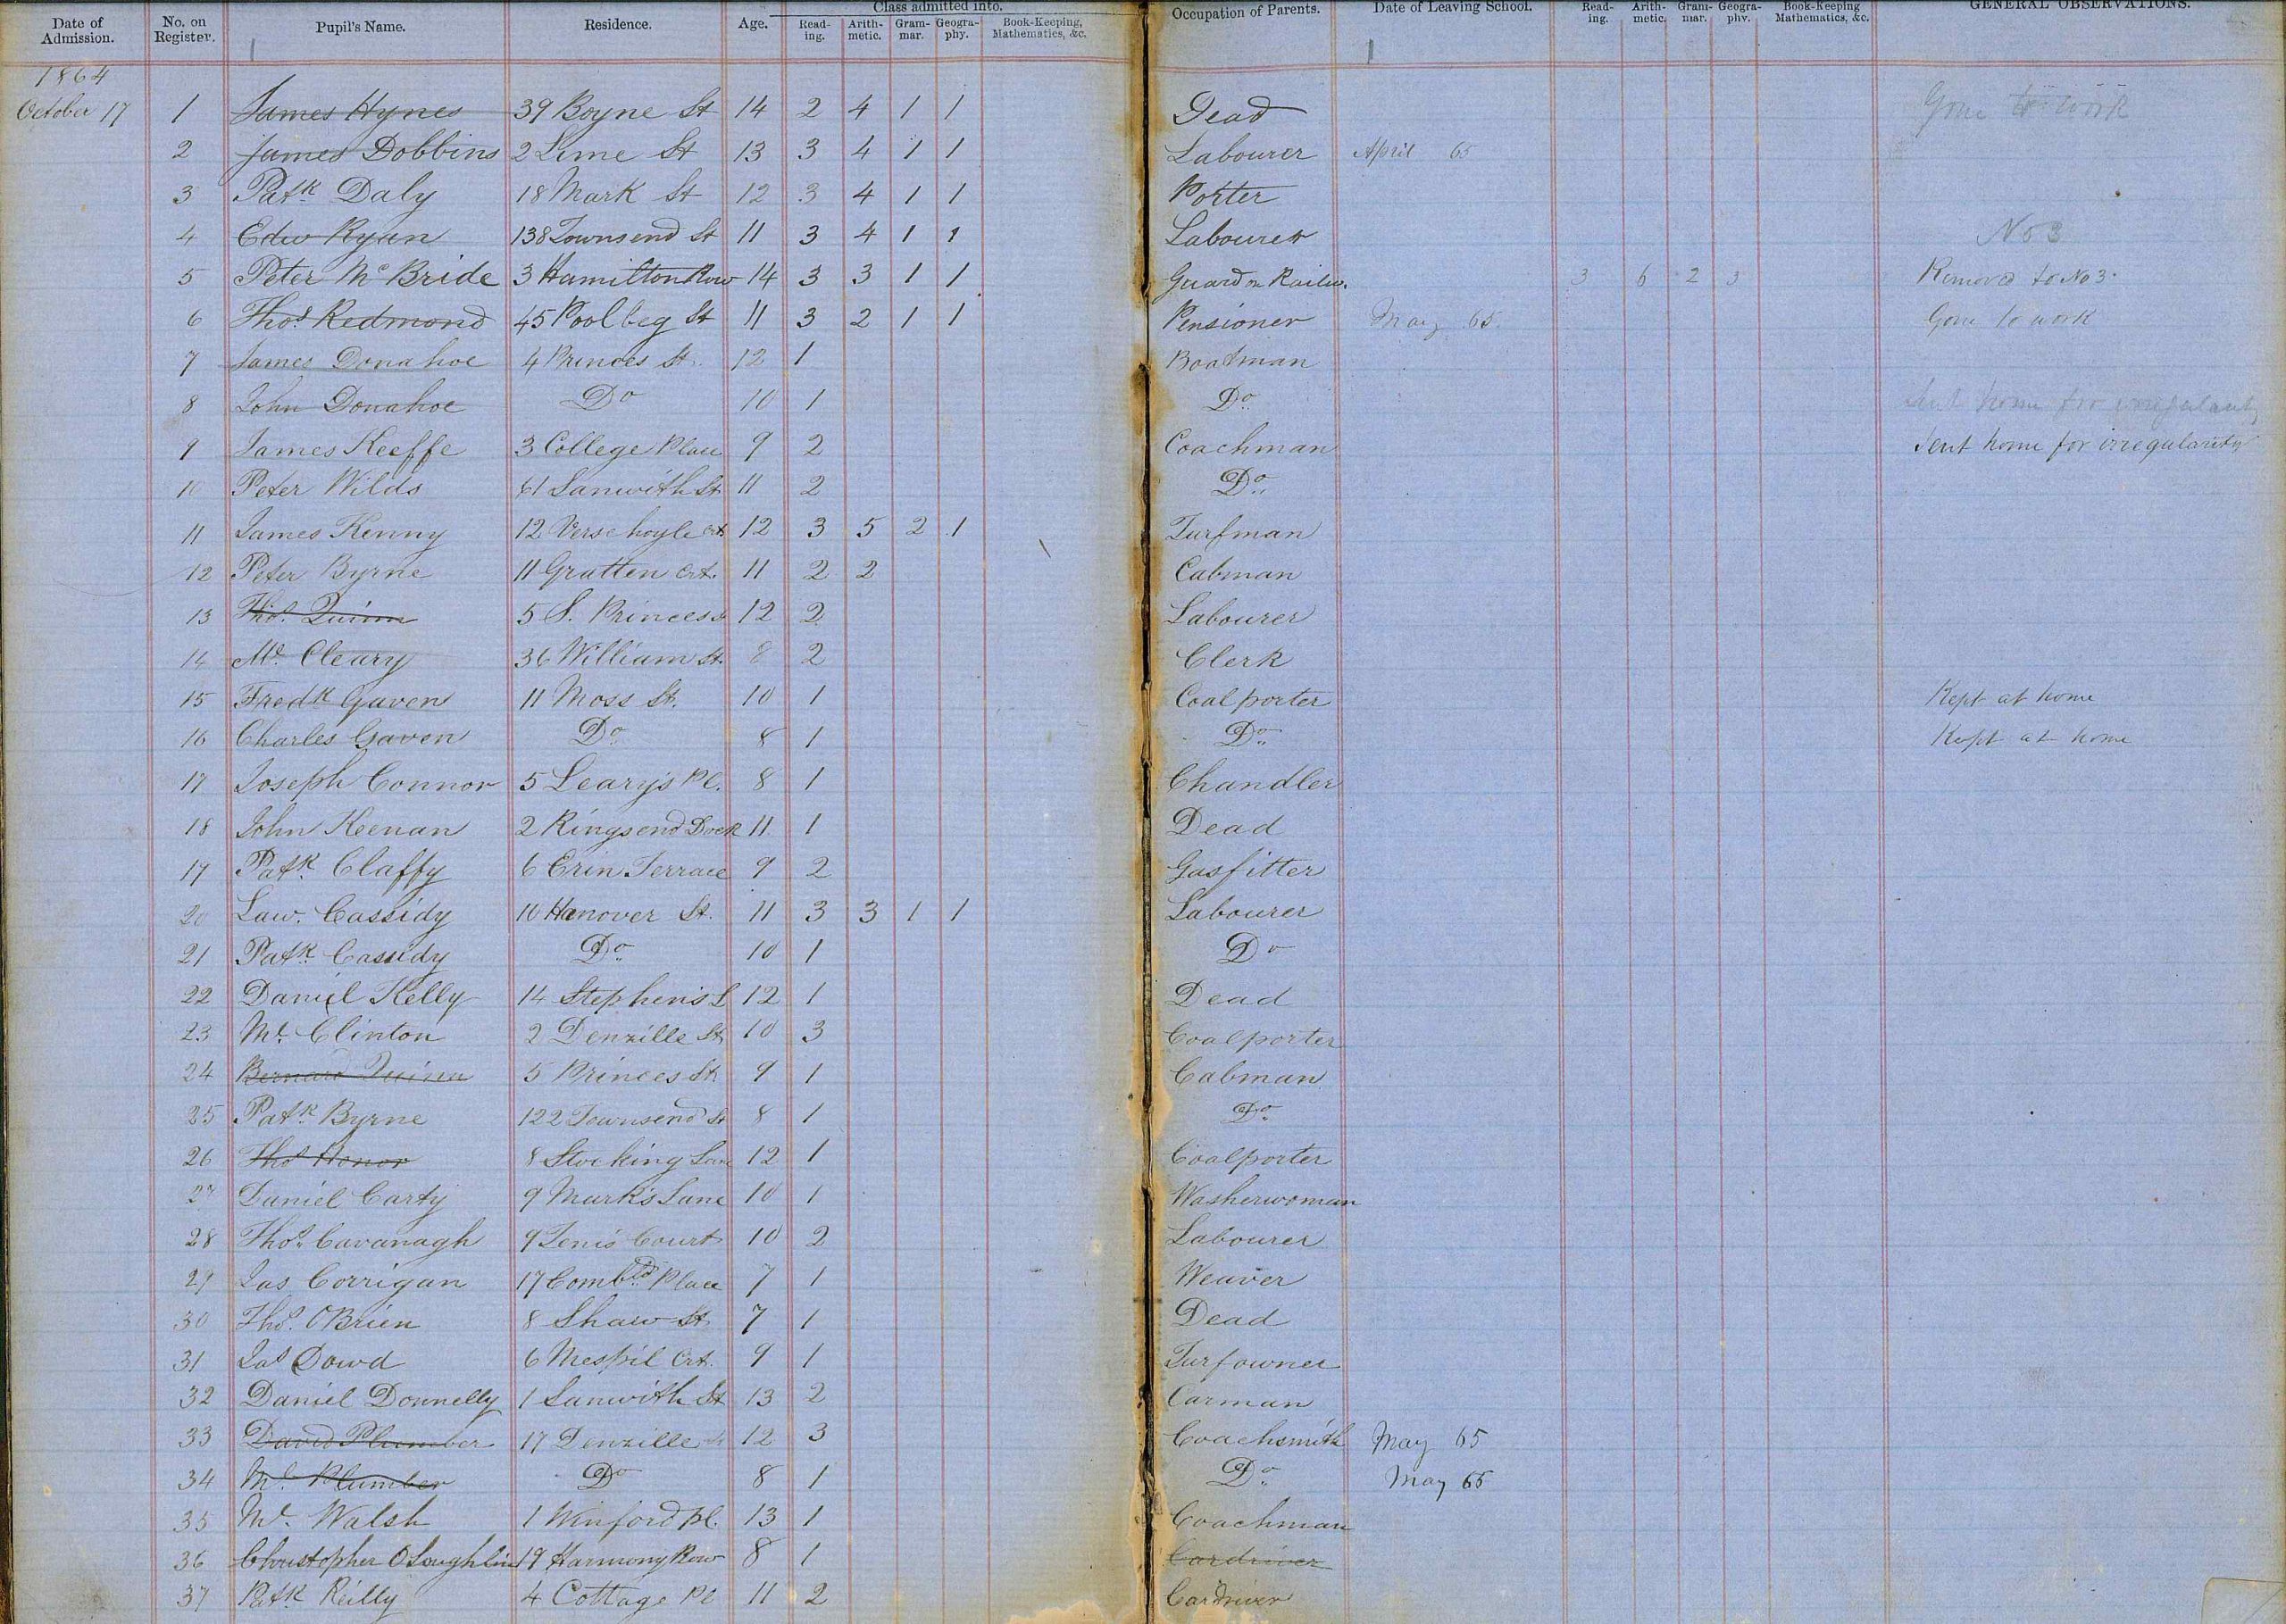 Date of Admission. No. on Register. Pupil's Name. Residence. Age. Class admitted into. Read-ing. Arith-metic. Gram-mar. Geogra-phy. Book-Keeping, Mathematics, &c. Occupation of Parents. Date of Leaving School. Read-ing. Arith-metic. Gram-mar. Geogra-phy. Book-Keeping Mathematics, &c. GENERAL OBSERVATIONS.
1864
October 17 1 James Hynes 39 Boyne St 14 2 4 1 1 Dead Gone to work
2 James Dobbins 2 Lime St 13 3 4 1 1 Labourer April 65
3 Patk Daly 18 Mark St 12 3 4 1 1 Porter
4 Edw Ryan 138 Townsend St 11 3 4 1 1 Labourer No 3
5 Peter McBride 3 Hamilton Row 14 3 3 1 1 Guard on Railw. 3 6 2 3 Removed to No 3.
6 Thos Redmond 45 Poolbeg St 11 3 2 1 1 Pensioner May 65. Gone to work
7 James Donahoe 4 Princes St. 12 1 Boatman
8 John Donahoe Do 10 1 Do Sent home for irregularity
9 James Keeffe 3 College Place 9 2 Coachman Sent home for irregularity
10 Peter Wilds 61 Sanwith St 11 2 Do
11 James Kenny 12 Verschoyle Crt 12 3 5 2 1 Turfman
12 Peter Byrne 11 Gratten Crt. 11 2 2 Cabman
13 Thos. Quinn 5 S. Princes s 12 2 Labourer
14 Ml. Cleary 36 William St. 8 2 Clerk
15 Fredk Gaven 11 Moss St. 10 1 Coalporter Kept at home
16 Charles Gaven Do 8 1 Do Kept at home
17 Joseph Connor 5 Leary's Pl. 8 1 Chandler
18 John Keenan 2 Ringsend Dock 11 1 Dead
19 Patk Claffy 6 Erin Terrace 9 2 Gasfitter
20 Law. Cassidy 10 Hanover St. 11 3 3 1 1 Labourer
21 Patk Cassidy Do 10 1 Do
22 Daniel Kelly 14 Stephen's L 12 1 Dead
23 Ml. Clinton 2 Denzille St 10 3 Coalporter
24 Bernard Quinn 5 Princes St 9 1 Cabman
25 Patk Byrne 122 Townsend St 8 1 Do
26 Thos Honor 8 Stocking Lane 12 1 Coalporter
27 Daniel Carty 9 Mark's Lane 10 1 Washerwoman
28 Thos. Cavanagh 9 Court 10 2 Labourer
29 Jas Corrigan 17 Combld Place 7 1 Weaver
30 Thos. OBrien 8 Shaw St 7 1 Dead
31 Jas Dowd 6 Mespil Crt. 9 1 Turfowner
32 Daniel Donnelly 1 Sanwith St 13 2 Carman
33 David Plumber 17 Denzille St 12 3 Coachsmith May 65
34 Ml. Plumber Do 8 1 Do May 65
35 Ml. Walsh 1 Winford Pl. 13 1 Coachman
36 Christopher OLoughlin 19 Harmony Row 8 1 Cardriver
37 Patk Reilly 4 Cottage Pl 11 2 Cardriver